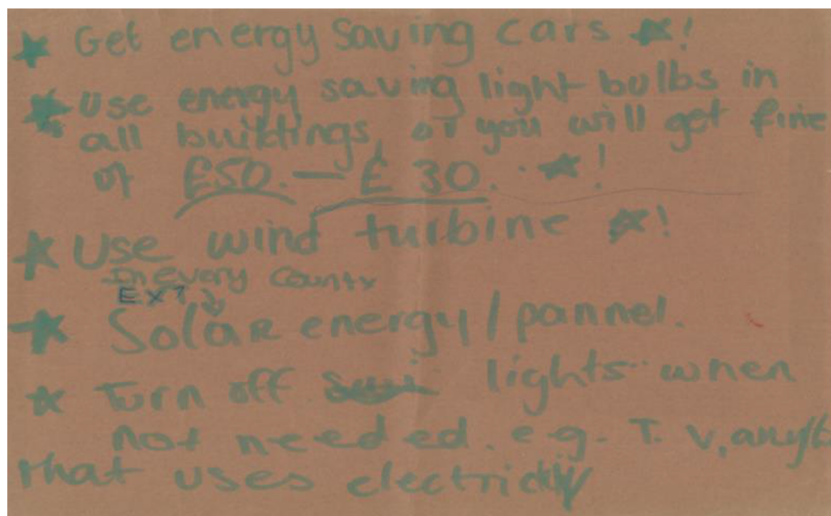 ★ Get energy saving cars ★!
★ Use energy saving light bulbs in
all buildings, or you will get fine
of £50.— £ 30. . ★!
★ Use wind turbine ★!
In every County
EX1
★ Solar energy / pannel.
★ Turn off lights when
not needed. e.g. T.V,
that uses electricity